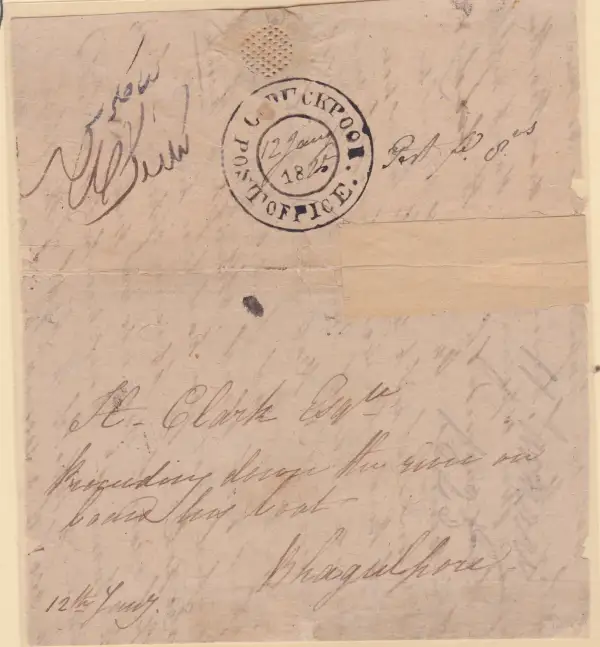 GORUCKPOOR
POST OFFICE.
12 Jany
18
Post pd. 8 as
H. Clark Esqre
Proceeding down the river on
board his boat
Bhagulpore
12th Jany.